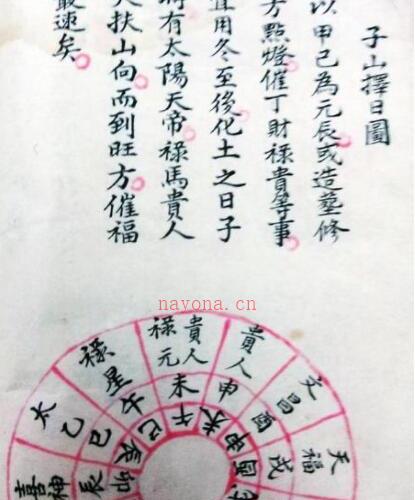 子山擇日圖
以甲己為元辰或造塟修
方點燈催丁財祿貴等事
宜用冬至後化土之日子
時有太陽天帝祿馬貴人
夫扶山向而到旺方催福
最速矣
nayona.cn
喜神
太乙
祿星
貴人
祿元
貴人
文昌
天福
辰
巳
午
未
申
酉
戌
卯
辰
巳
午
未
申